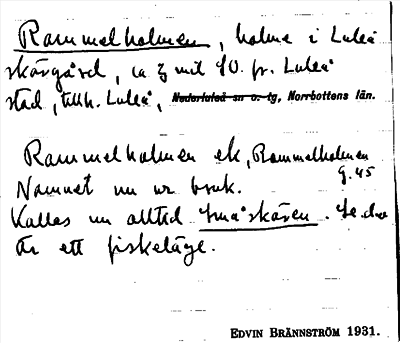 Rammelholmen, holme i Luleå
skärgård, ca ½ mil SO. fr. Luleå
stad, tillh. Luleå, Nederluleå sn o. tg, Norrbottens län.
Rammelholmen ek, Rammelholmen
G. 45
Namnet nu ur bruk.
Kallas nu alltid Småskären. Se d:o
Är ett fiskeläge.
EDVIN BRÄNNSTRÖM 1931.